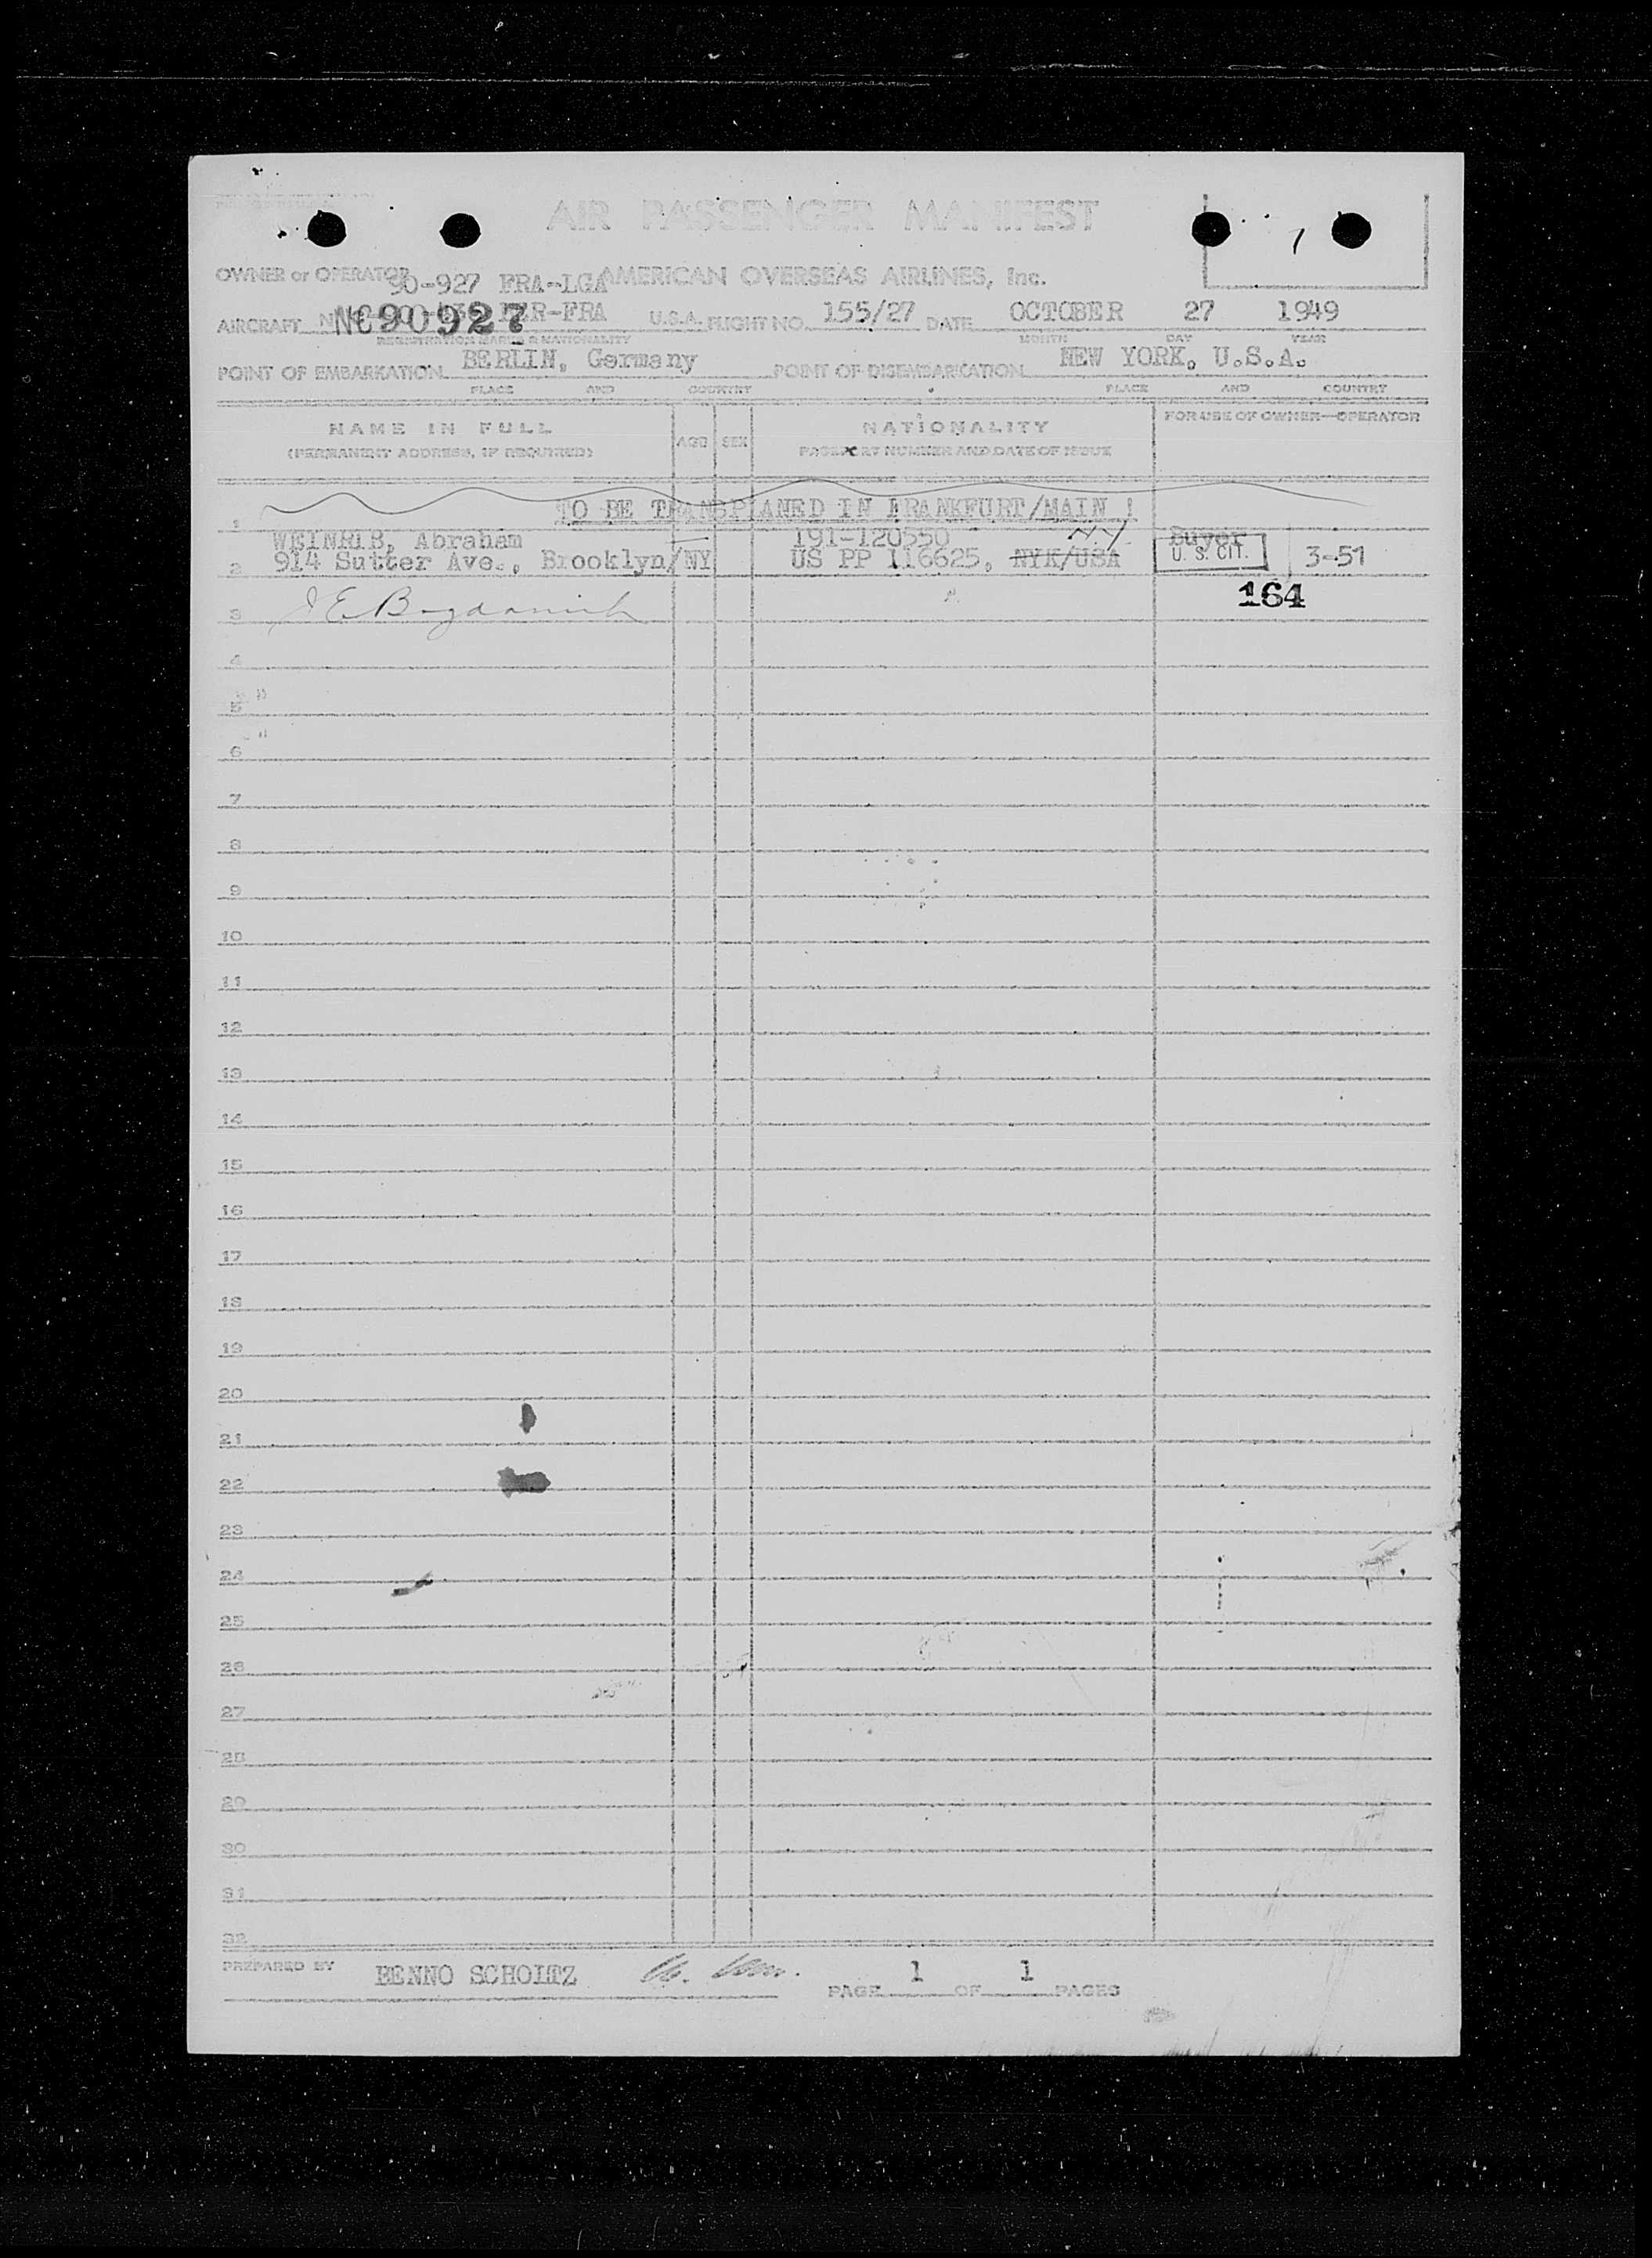 AIR PASSENGER MANIFEST
OWNER or OPERATOR 90-927 FRA-LGA AMERICAN OVERSEAS AIRLINES, Inc.
AIRCRAFT NC90927 BER-FRA U.S.A. FLIGHT NO. 155/27 DATE OCTOBER 27 1949
REGISTRATION MARKS & NATIONALITY MONTH DAY YEAR
POINT OF EMBARKATION BERLIN, Germany POINT OF DISEMBARKATION NEW YORK, U.S.A.
PLACE AND COUNTRY PLACE AND COUNTRY
NAME IN FULL AGE SEX NATIONALITY FOR USE OF OWNER—OPERATOR
(PERMANENT ADDRESS, IF REQUIRED) PASSPORT NUMBER AND DATE OF ISSUE
TO BE TRANSPLANED IN FRANKFURT/MAIN !
1 WEINRIB, Abraham 191-120550 N.Y buyer
2 914 Sutter Ave., Brooklyn/NY US PP 116625, NYK/USA U. S. CIT. 3-51
164
3
4
5
6
7
8
9
10
11
12
13
14
15
16
17
18
19
20
21
22
23
24
25
26
27
28
29
30
31
32
PREPARED BY BENNO SCHOLTZ
PAGE 1 OF 1 PAGES